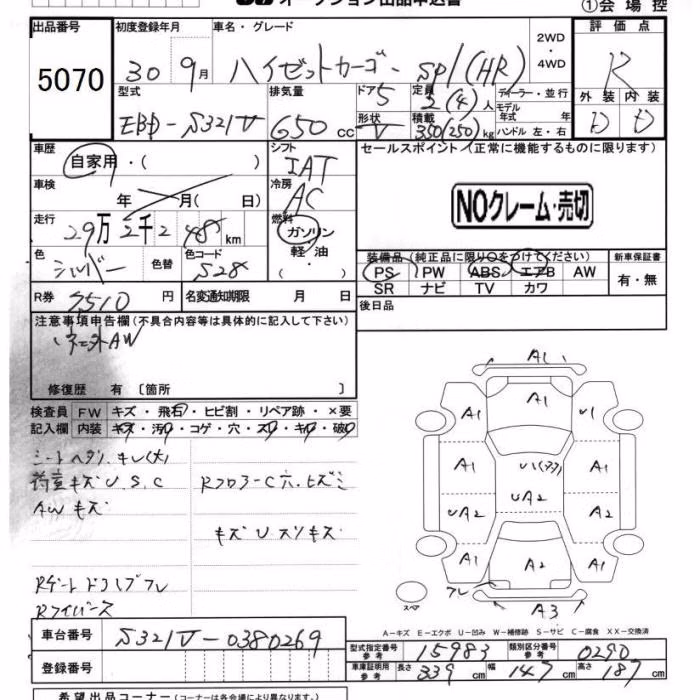 オークション出品申込書
①会場控
出品番号 初度登録年月 車名・グレード 2WD・4WD 評価点
5070 30 9月 ハイゼットカーゴ SP/(HR) R
型式 排気量 ドア 5 定員 2(4)人 ディーラー・並行 外装 内装
EBD-S321V 650 cc 形状 V 積載 350(250)kg モデル年式 年 ハンドル 左・右 D D
車歴 自家用・( ) シフト IAT セールスポイント(正常に機能するものに限ります)
車検 年 月( 日) 冷房 AC
NOクレーム・売切
走行 29万2千2 48 km 燃料 ガソリン・軽油・( )
色 シルバー 色替 色コード S28
装備品(純正品に限り○をつけてください) 新車保証書
PS PW ABS エアB AW 有・無
SR ナビ TV カワ
R券 7510 円 名変通知期限 月 日
後日品
注意事項申告欄(不具合内容等は具体的に記入して下さい)
社外AW
修復歴 有 〔箇所 〕
検査員 FW キズ・飛石・ヒビ割・リペア跡・×要
記入欄 内装 キズ・汚れ・コゲ・穴・スレ・キレ・破れ
シートヘタリ、キレ(大)
荷室キズU.S.C RフロアーC穴、ヒズミ
AWキズ
キズUスリキズ
Rゲートドライブフレ
Rフイバース
A1
A1 A1 U1
A1 U1(フフ) A1
UA2 UA2 A2
A1 A2 A1
フレ
スペア A3
A-キズ E-エクボ U-凹み W-補修跡 S-サビ C-腐食 XX-交換済
車台番号 S321V-0380269
型式指定番号 参考 15983 類別区分番号 参考 0290
登録番号
車庫証明用 参考 長さ 339 cm 幅 147 cm 高さ 187 cm
希望出品コーナー(コーナーは各会場により異なります)